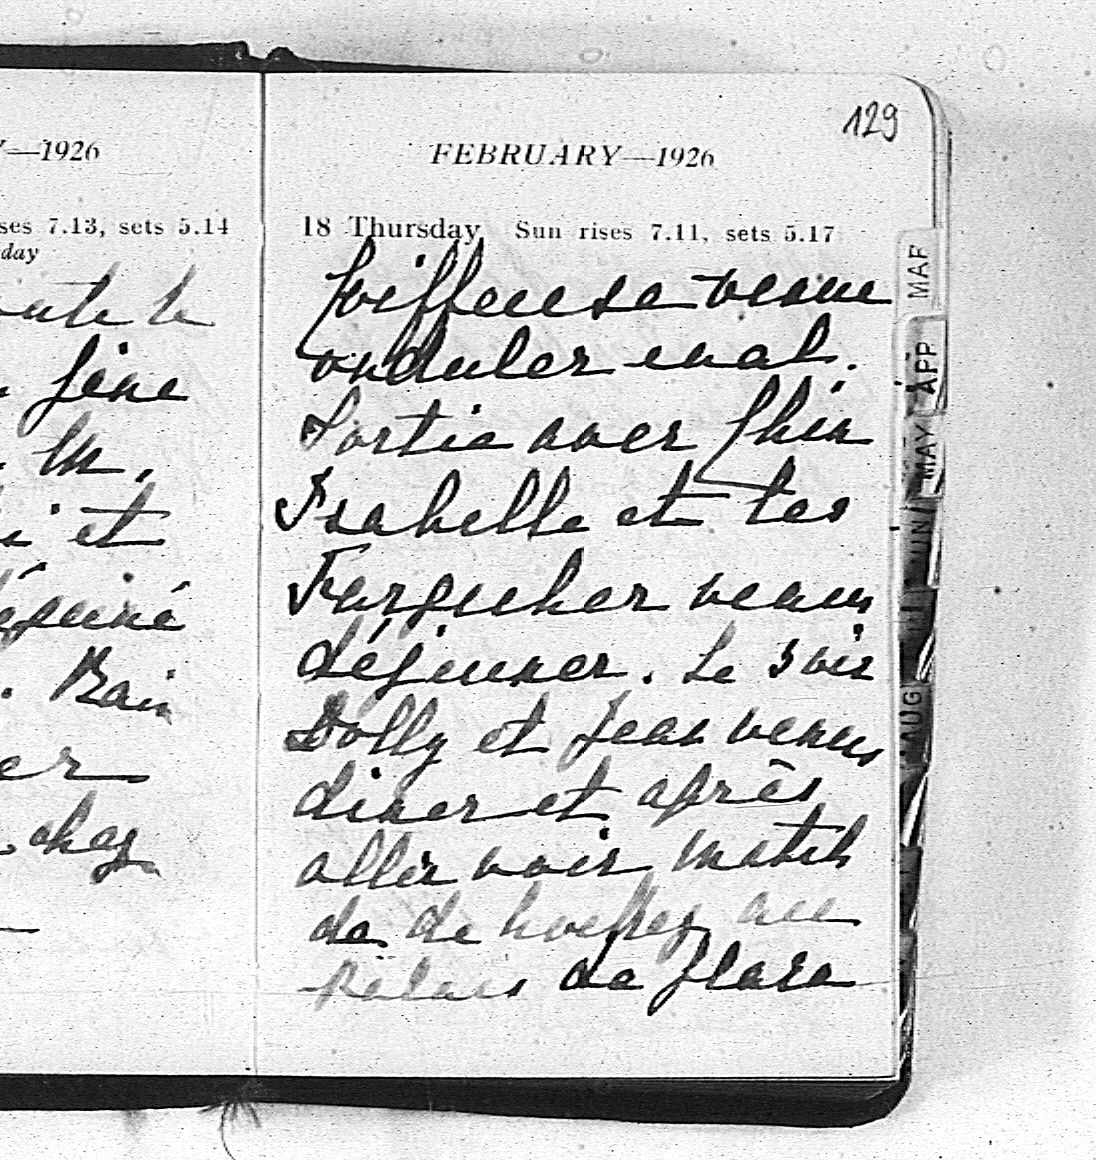 —1926
ses 7.13, sets 5.14
day
te
gène
M.
i et
déjeuné
. Bain
er
chez
129
FEBRUARY—1926
18 Thursday Sun rises 7.11, sets 5.17
Coiffeuse venue
onduler mal.
Sortie avec Chin
Isabelle et les
Farquher venus
déjeuner. Le soir
Dolly et Jean venus
diner et après
aller voir match
de de hockey au
Palais de glace
MAR
APP
MAY
JUN
AUG